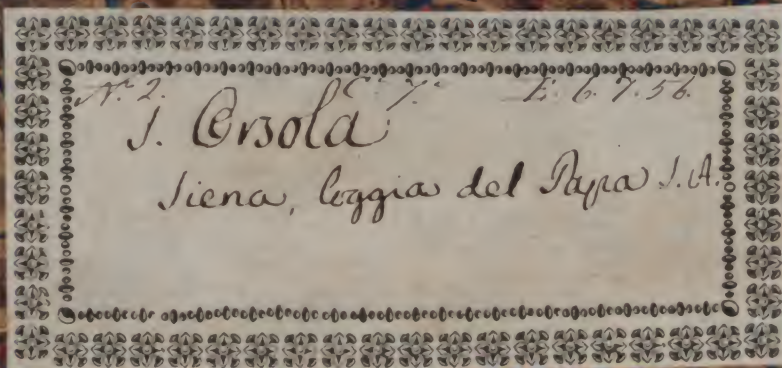 N.º 2. C.º 7.º L. 6. 7. 56.
S. Orsola
Siena, loggia del Papa S. A.